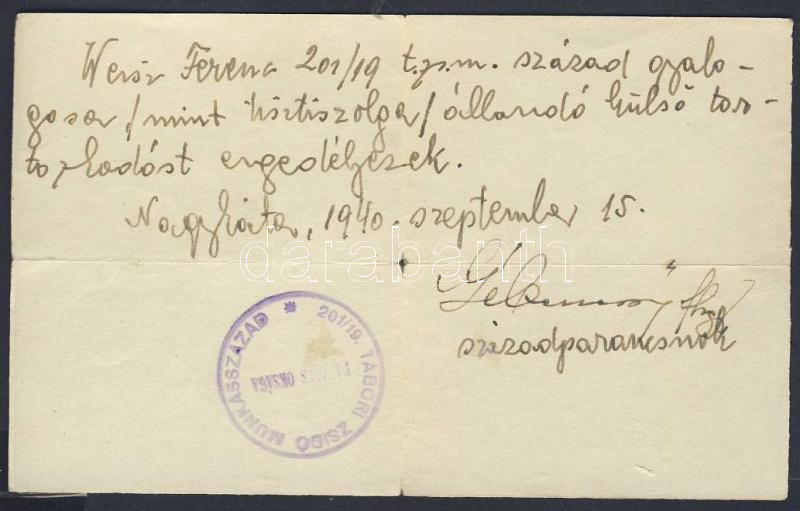 Weisz Ferenc 201/19 t.zs.m. század gyalo-
gosa /mint tisztiszolga/ állandó külső tar-
tozkodást engedélyezek.
Nagykáta, 1940. szeptember 15.
századparancsnok
201/19. TÁBORI ZSIDÓ MUNKÁSSZÁZAD
darabanth